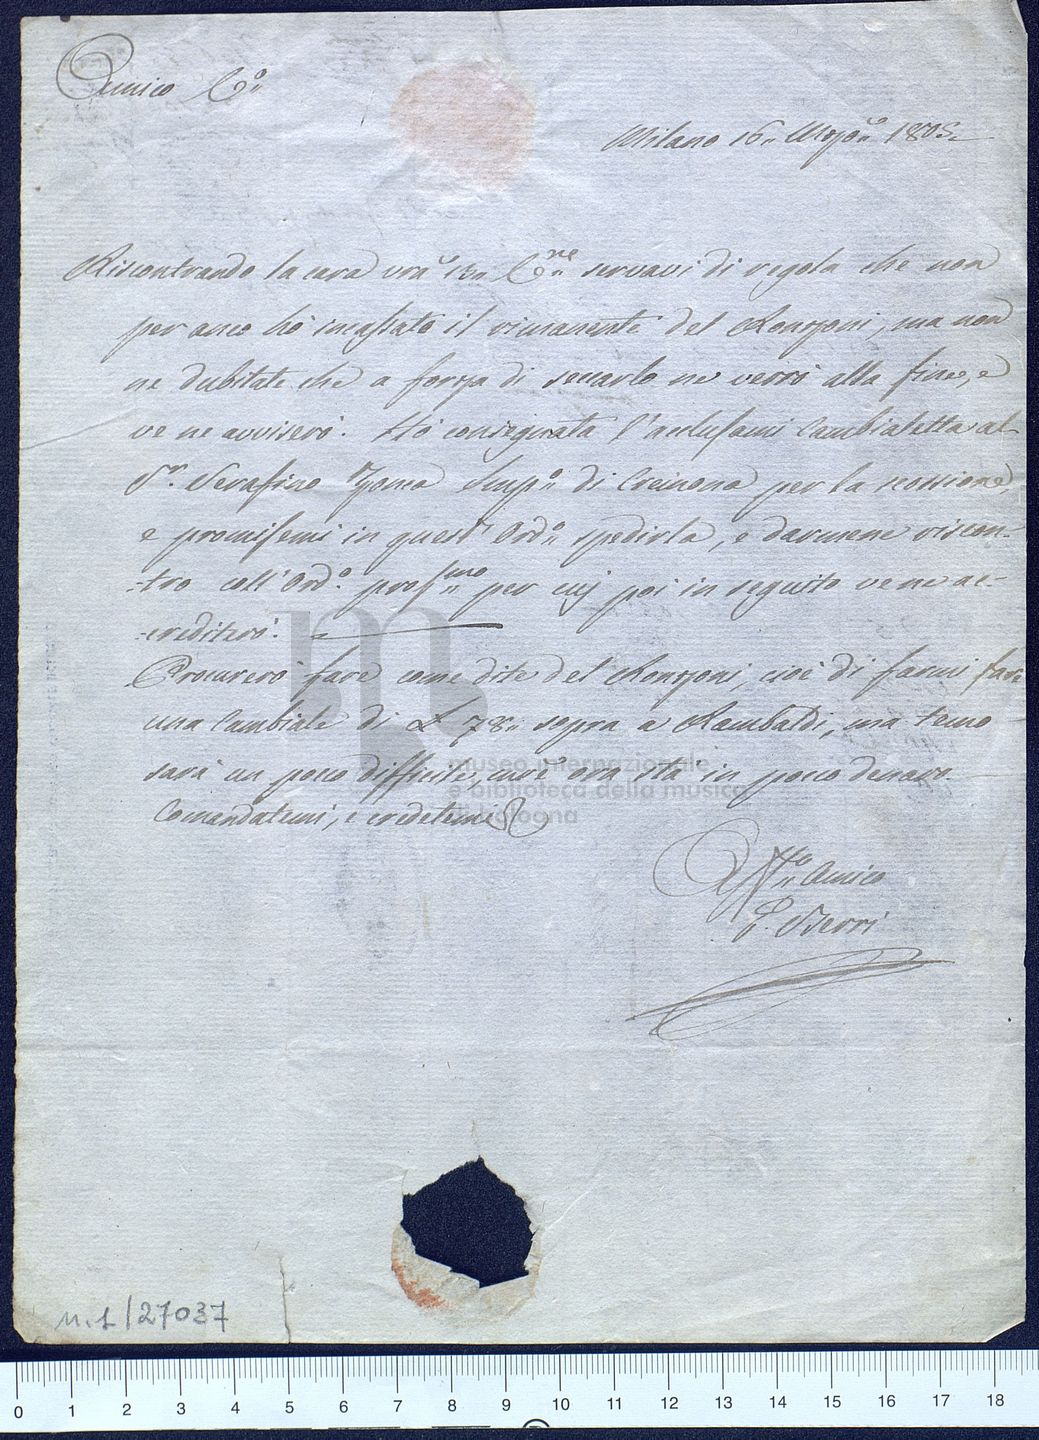 Amico C.o
Milano 16„ Mag.o 1805„
Riscontrando la cara vra 13„ C.ne servavi di regola che non
per anco hò incassato il rimanente del Ronzoni, ma non
ne dubitate che a forza di seccarlo ne verrò alla fine, e
ve ne avviserò. Hò consegnata l'acclusami Cambialetta al
S.r Serafino di Cremona per la scossione,
e promisemi in quest'Ord.o spedirla, e darmene riscon-
-tro coll'Ord.o pross.mo per cuj poi in seguito ve ne ac-
-crediterò.
Procurerò fare come dite del Ronzoni, cioè di farmi fare
una Cambiale di £ 78„ sopra a Rambaldi, ma temo
sarà un poco difficile, ora stà in poco denaro
Comandatemi, e credetemi
Aff.o Amico
G. Berri
n.1/27037
museo internazionale
e biblioteca della musica
di bologna
0 1 2 3 4 5 6 7 8 9 10 11 12 13 14 15 16 17 18